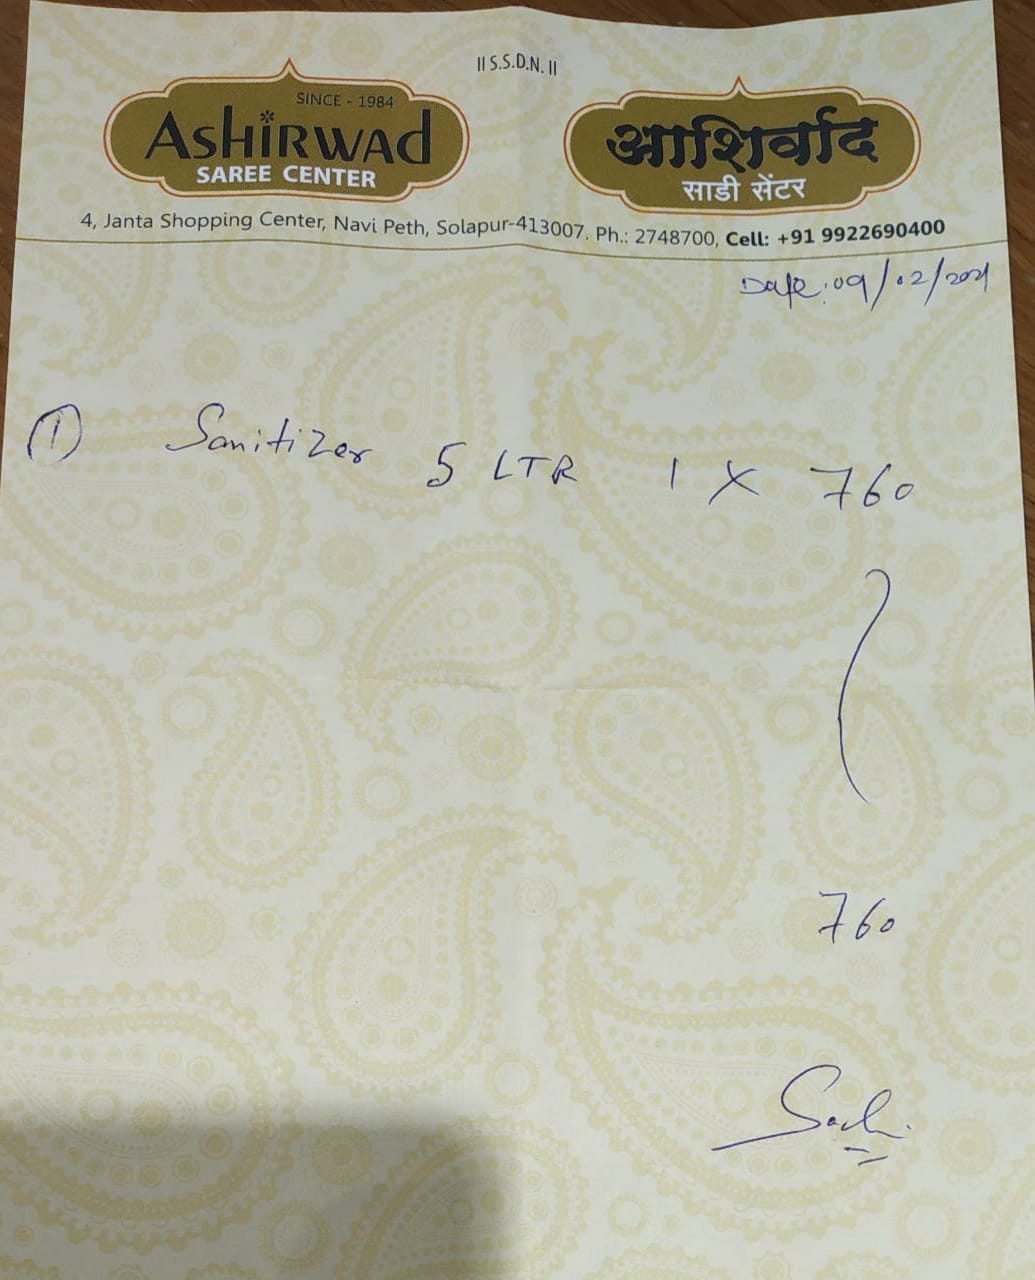 ॥ S.S.D.N. ॥
SINCE - 1984
AsHiRWAd
SAREE CENTER
आशिर्वाद
साडी सेंटर
4, Janta Shopping Center, Navi Peth, Solapur-413007. Ph.: 2748700, Cell: +91 9922690400
Date: 09/02/2021
① Sanitizer 5 LTR 1 X 760
760